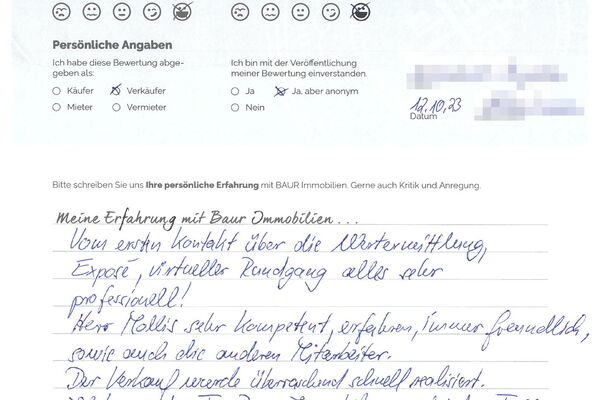 Persönliche Angaben
Ich habe diese Bewertung abge-
geben als:
Käufer Verkäufer
Mieter Vermieter
Ich bin mit der Veröffentlichung
meiner Bewertung einverstanden.
Ja Ja, aber anonym
Nein
12.10.23
Datum
Bitte schreiben Sie uns Ihre persönliche Erfahrung mit BAUR Immobilien. Gerne auch Kritik und Anregung.
Meine Erfahrung mit Baur Immobilien...
Vom ersten Kontakt über die Wertermittlung,
Exposé, virtueller Rundgang alles sehr
professionell!
Herr Mollis sehr kompetent, erfahren, immer freundlich,
sowie auch die anderen Mitarbeiter.
Der Verkauf wurde überraschend schnell realisiert.